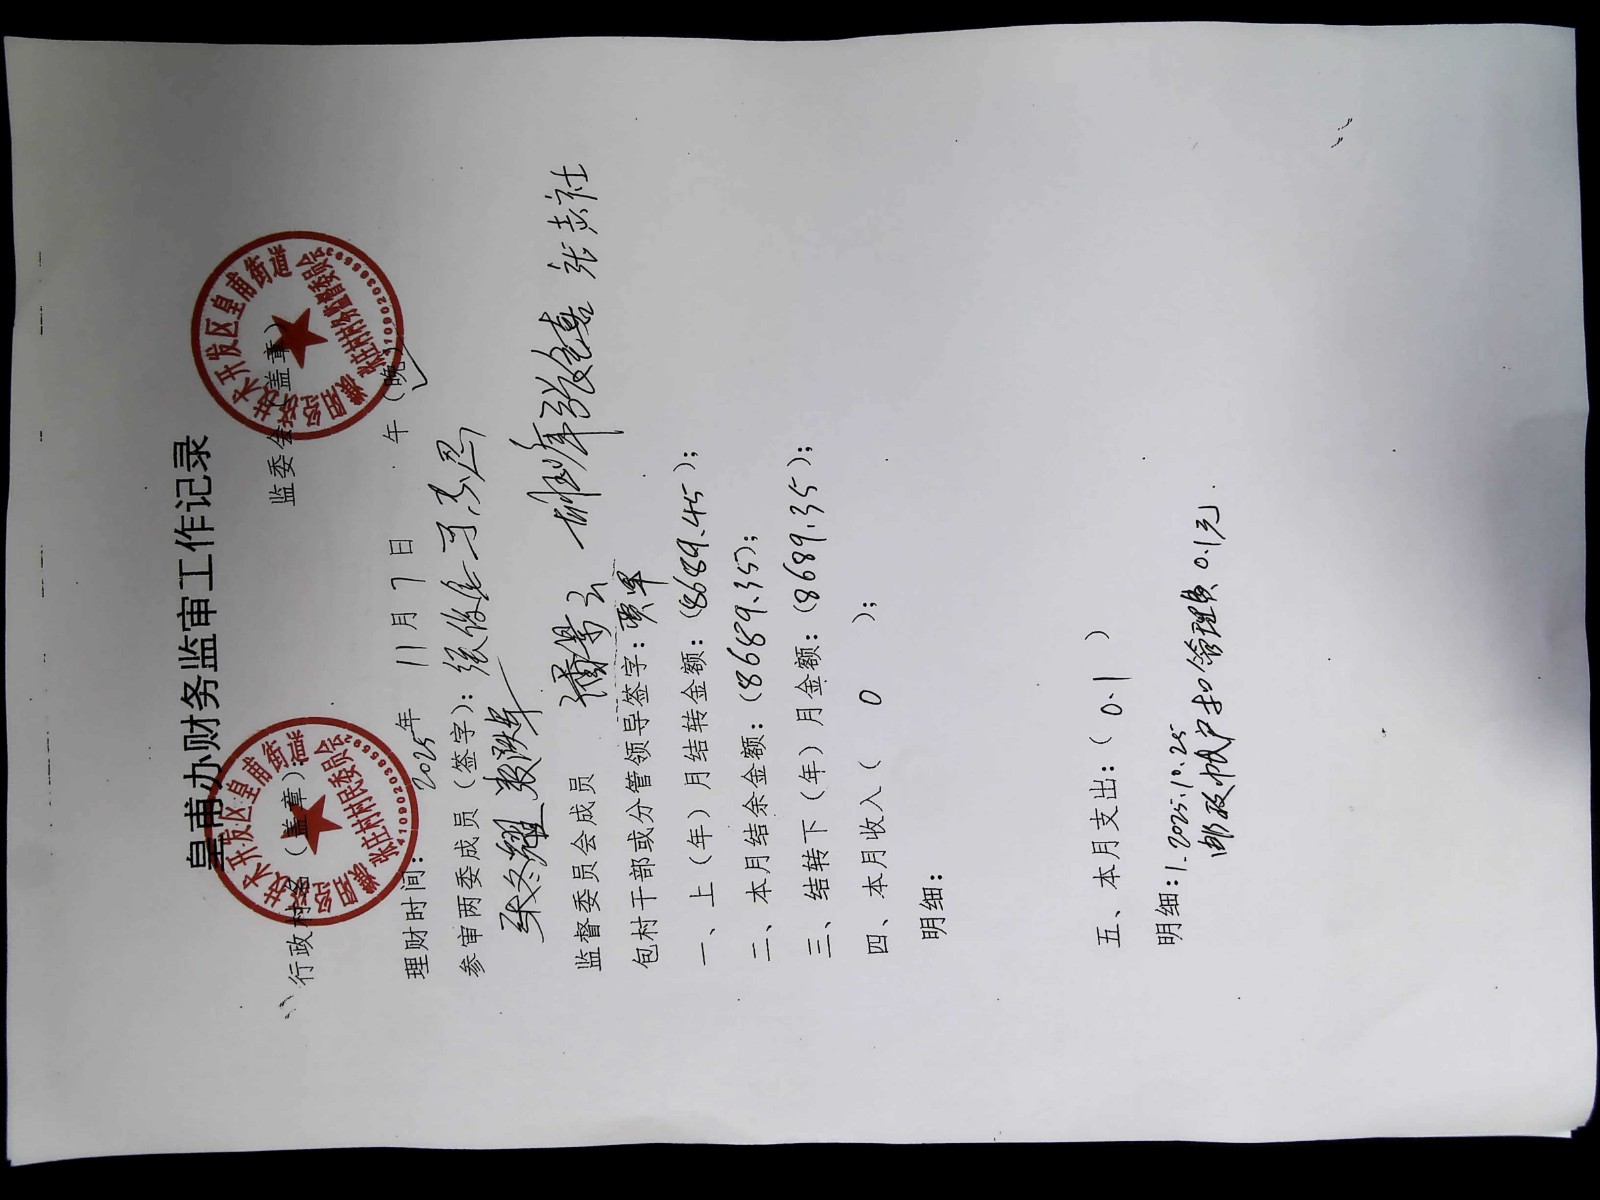 皇甫办财务监审工作记录
行政村名（盖章）： 监委会（盖章）
濮阳经济技术开发区皇甫街道
张庄村村民委员会
4109020385592
濮阳经济技术开发区皇甫街道
张庄村村务监督委员会
理财时间： 2025年 11月7日 年（晚）
参审两委成员（签字）：张俊
张冬耀
监督委员会成员
张彦社
包村干部或分管领导签字：贾军
一、上（年）月结转金额：（8689.45）；
二、本月结余金额：（8689.35）；
三、结转下（年）月金额：（8689.35）；
四、本月收入（ 0 ）；
明细：
五、本月支出：（ 0.1 ）
明细：1. 2025.10.25
邮政帐户扣管理费0.1元.